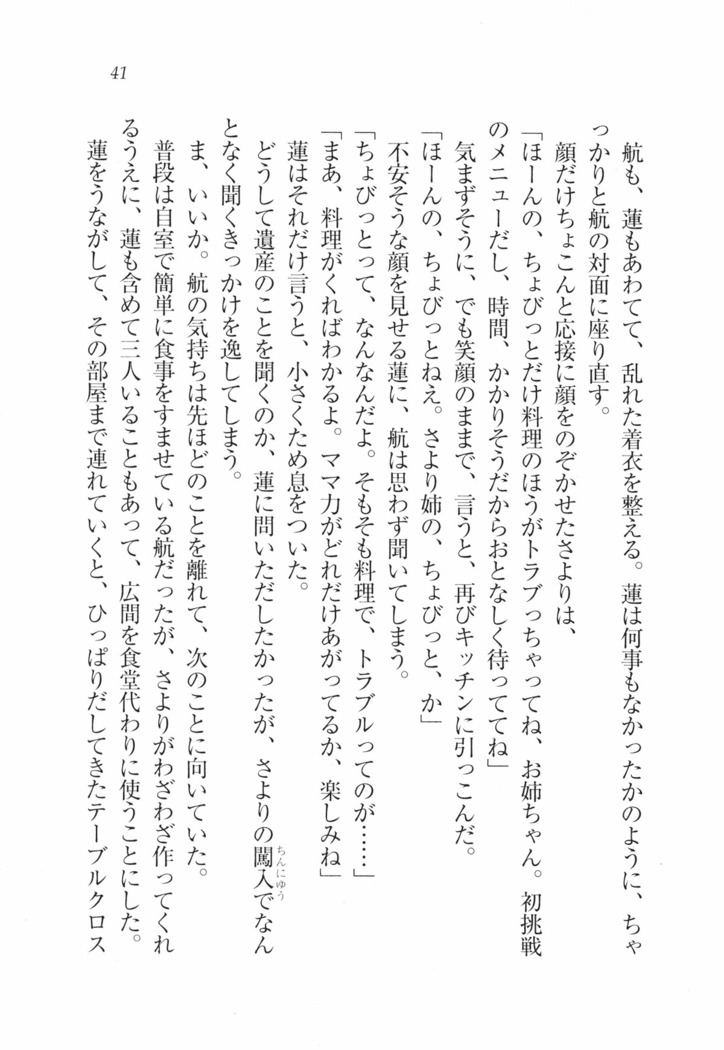 41
航も、蓮もあわてて、乱れた着衣を整える。蓮は何事もなかったかのように、ちゃ
っかりと航の対面に座り直す。
顔だけちょこんと応接に顔をのぞかせたさよりは、
「ほーんの、ちょびっとだけ料理のほうがトラブっちゃってね、お姉ちゃん。初挑戦
のメニューだし、時間、かかりそうだからおとなしく待っててね」
気まずそうに、でも笑顔のままで、言うと、再びキッチンに引っこんだ。
「ほーんの、ちょびっとねえ。さより姉の、ちょびっと、か」
不安そうな顔を見せる蓮に、航は思わず聞いてしまう。
「ちょびっとって、なんなんだよ。そもそも料理で、トラブルってのが……」
「まあ、料理がくればわかるよ。ママ力がどれだけあがってるか、楽しみね」
蓮はそれだけ言うと、小さくため息をついた。
どうして遺産のことを聞くのか、蓮に問いただしたかったが、さよりの闖入でなん
ちんにゅう
となく聞くきっかけを逸してしまう。
ま、いいか。航の気持ちは先ほどのことを離れて、次のことに向いていた。
普段は自室で簡単に食事をすませている航だったが、さよりがわざわざ作ってくれ
るうえに、蓮も含めて三人いることもあって、広間を食堂代わりに使うことにした。
蓮をうながして、その部屋まで連れていくと、ひっぱりだしてきたテーブルクロス